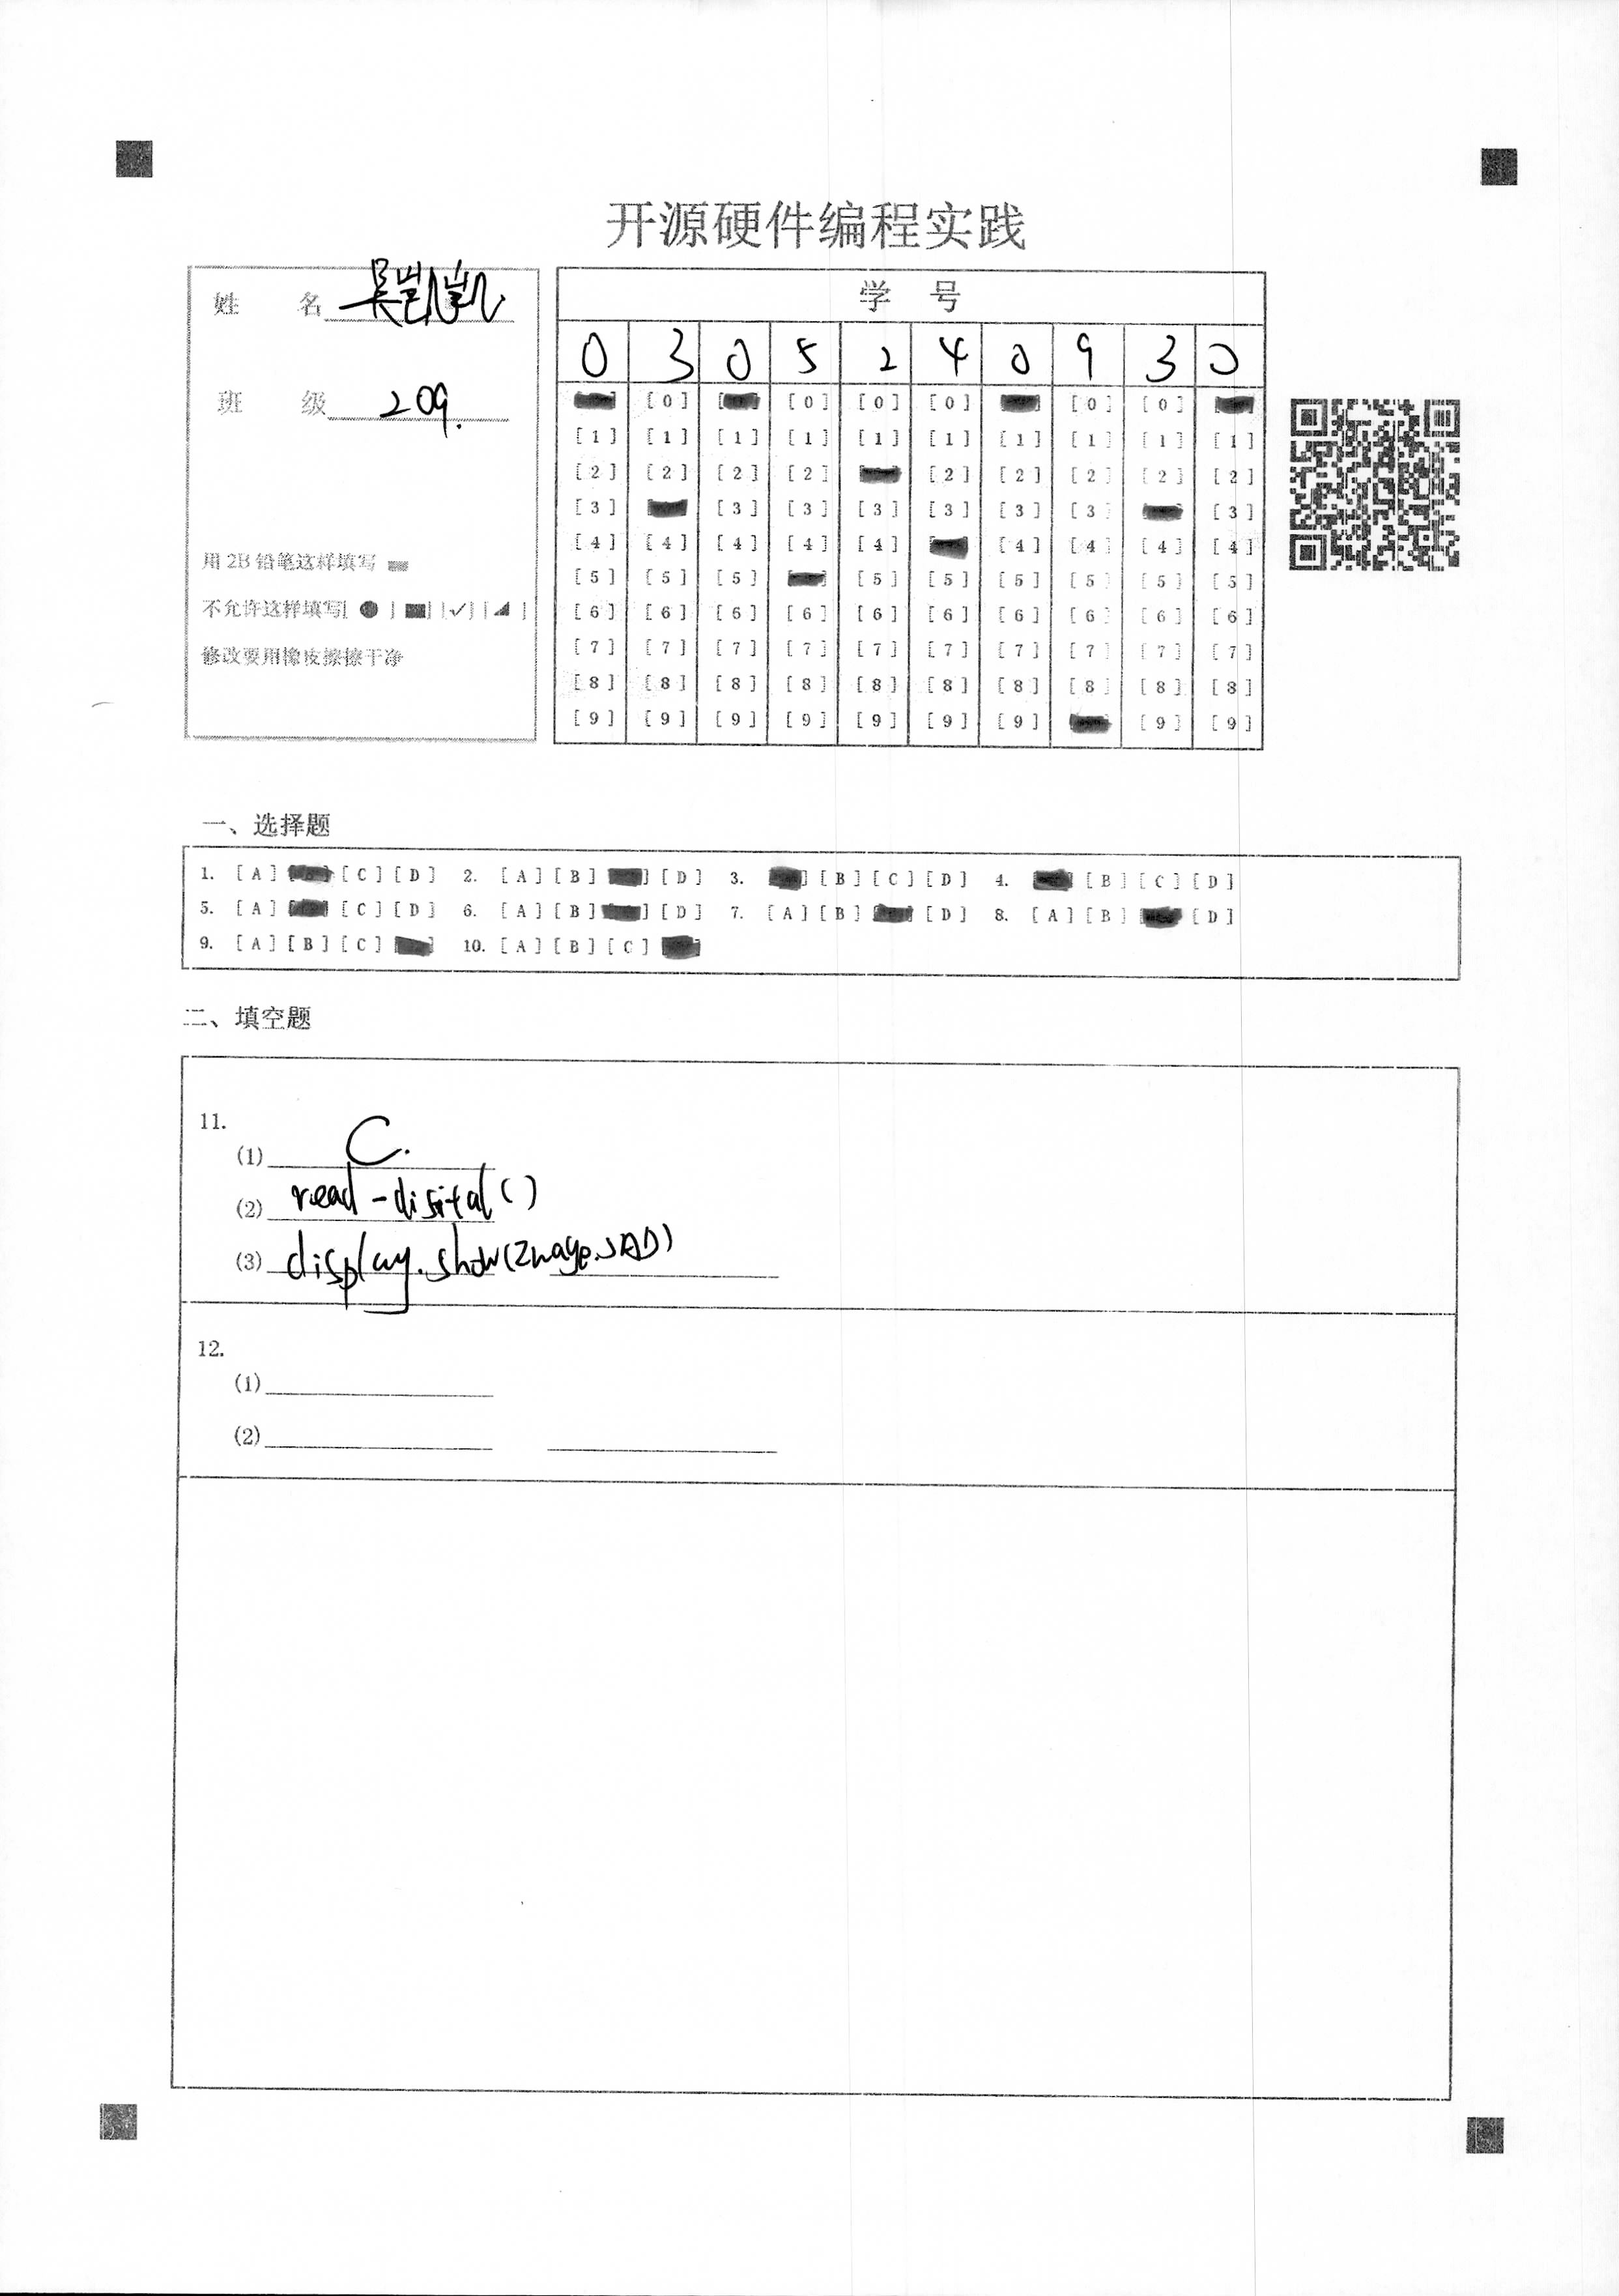 开源硬件编程实践
姓 名 吴凯凯
班 级 209.
用 2B 铅笔这样填写
不允许这样填写[ ● ] [■] [✓] [◢ ]
修改要用橡皮擦擦干净
学 号
0 3 0 5 2 4 0 9 3 0
[0] [0] [0] [0] [0] [0]
[1] [1] [1] [1] [1] [1] [1] [1] [1] [1]
[2] [2] [2] [2] [2] [2] [2] [2] [2]
[3] [3] [3] [3] [3] [3] [3] [3]
[4] [4] [4] [4] [4] [4] [4] [4] [4]
[5] [5] [5] [5] [5] [5] [5] [5] [5]
[6] [6] [6] [6] [6] [6] [6] [6] [6] [6]
[7] [7] [7] [7] [7] [7] [7] [7] [7] [7]
[8] [8] [8] [8] [8] [8] [8] [8] [8] [8]
[9] [9] [9] [9] [9] [9] [9] [9] [9]
一、选择题
1. [A] [C] [D] 2. [A] [B] [D] 3. [B] [C] [D] 4. [B] [C] [D]
5. [A] [C] [D] 6. [A] [B] [D] 7. [A] [B] [D] 8. [A] [B] [D]
9. [A] [B] [C] 10. [A] [B] [C]
二、填空题
11.
(1) C.
(2) read-disital()
(3) display.show(Image.SAD)
12.
(1)
(2)